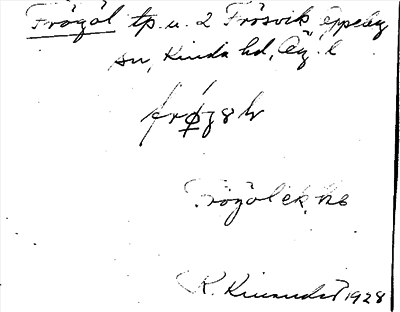 Frögöl tp. u. 2 Frösvik Oppeby
sn, Kinda hd, Ög. l
Frögöl ek. kb
R. Kinander 1928